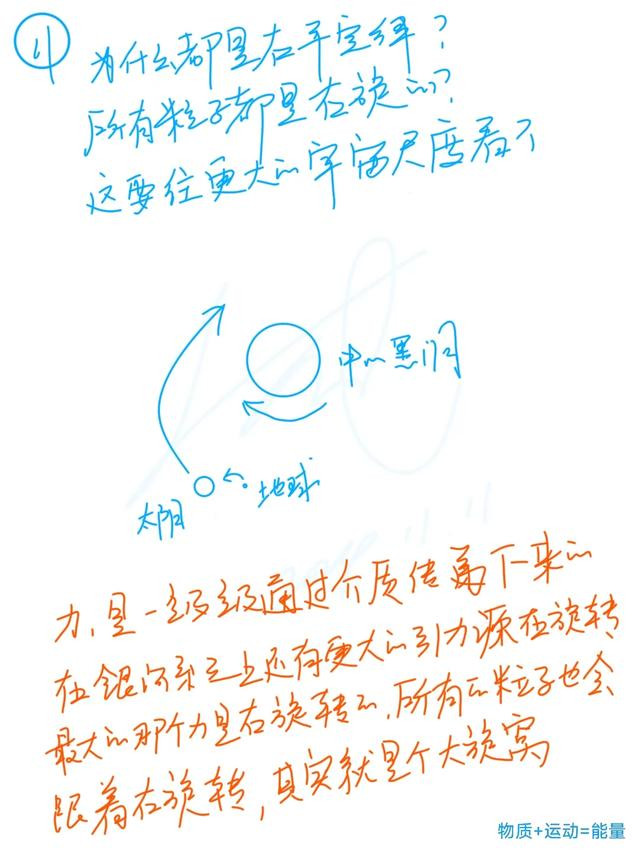 ④
为什么都是右手定律？
所有粒子都是右旋的？
这要往更大的宇宙尺度看了
中心黑洞
地球
太阳
力，是一级级通过介质传递下来的
在银河系之上还有更大的引力源在旋转
最大的那个力是右旋转的，所有的粒子也会
跟着右旋转，其实就是个大旋窝
物质+运动=能量